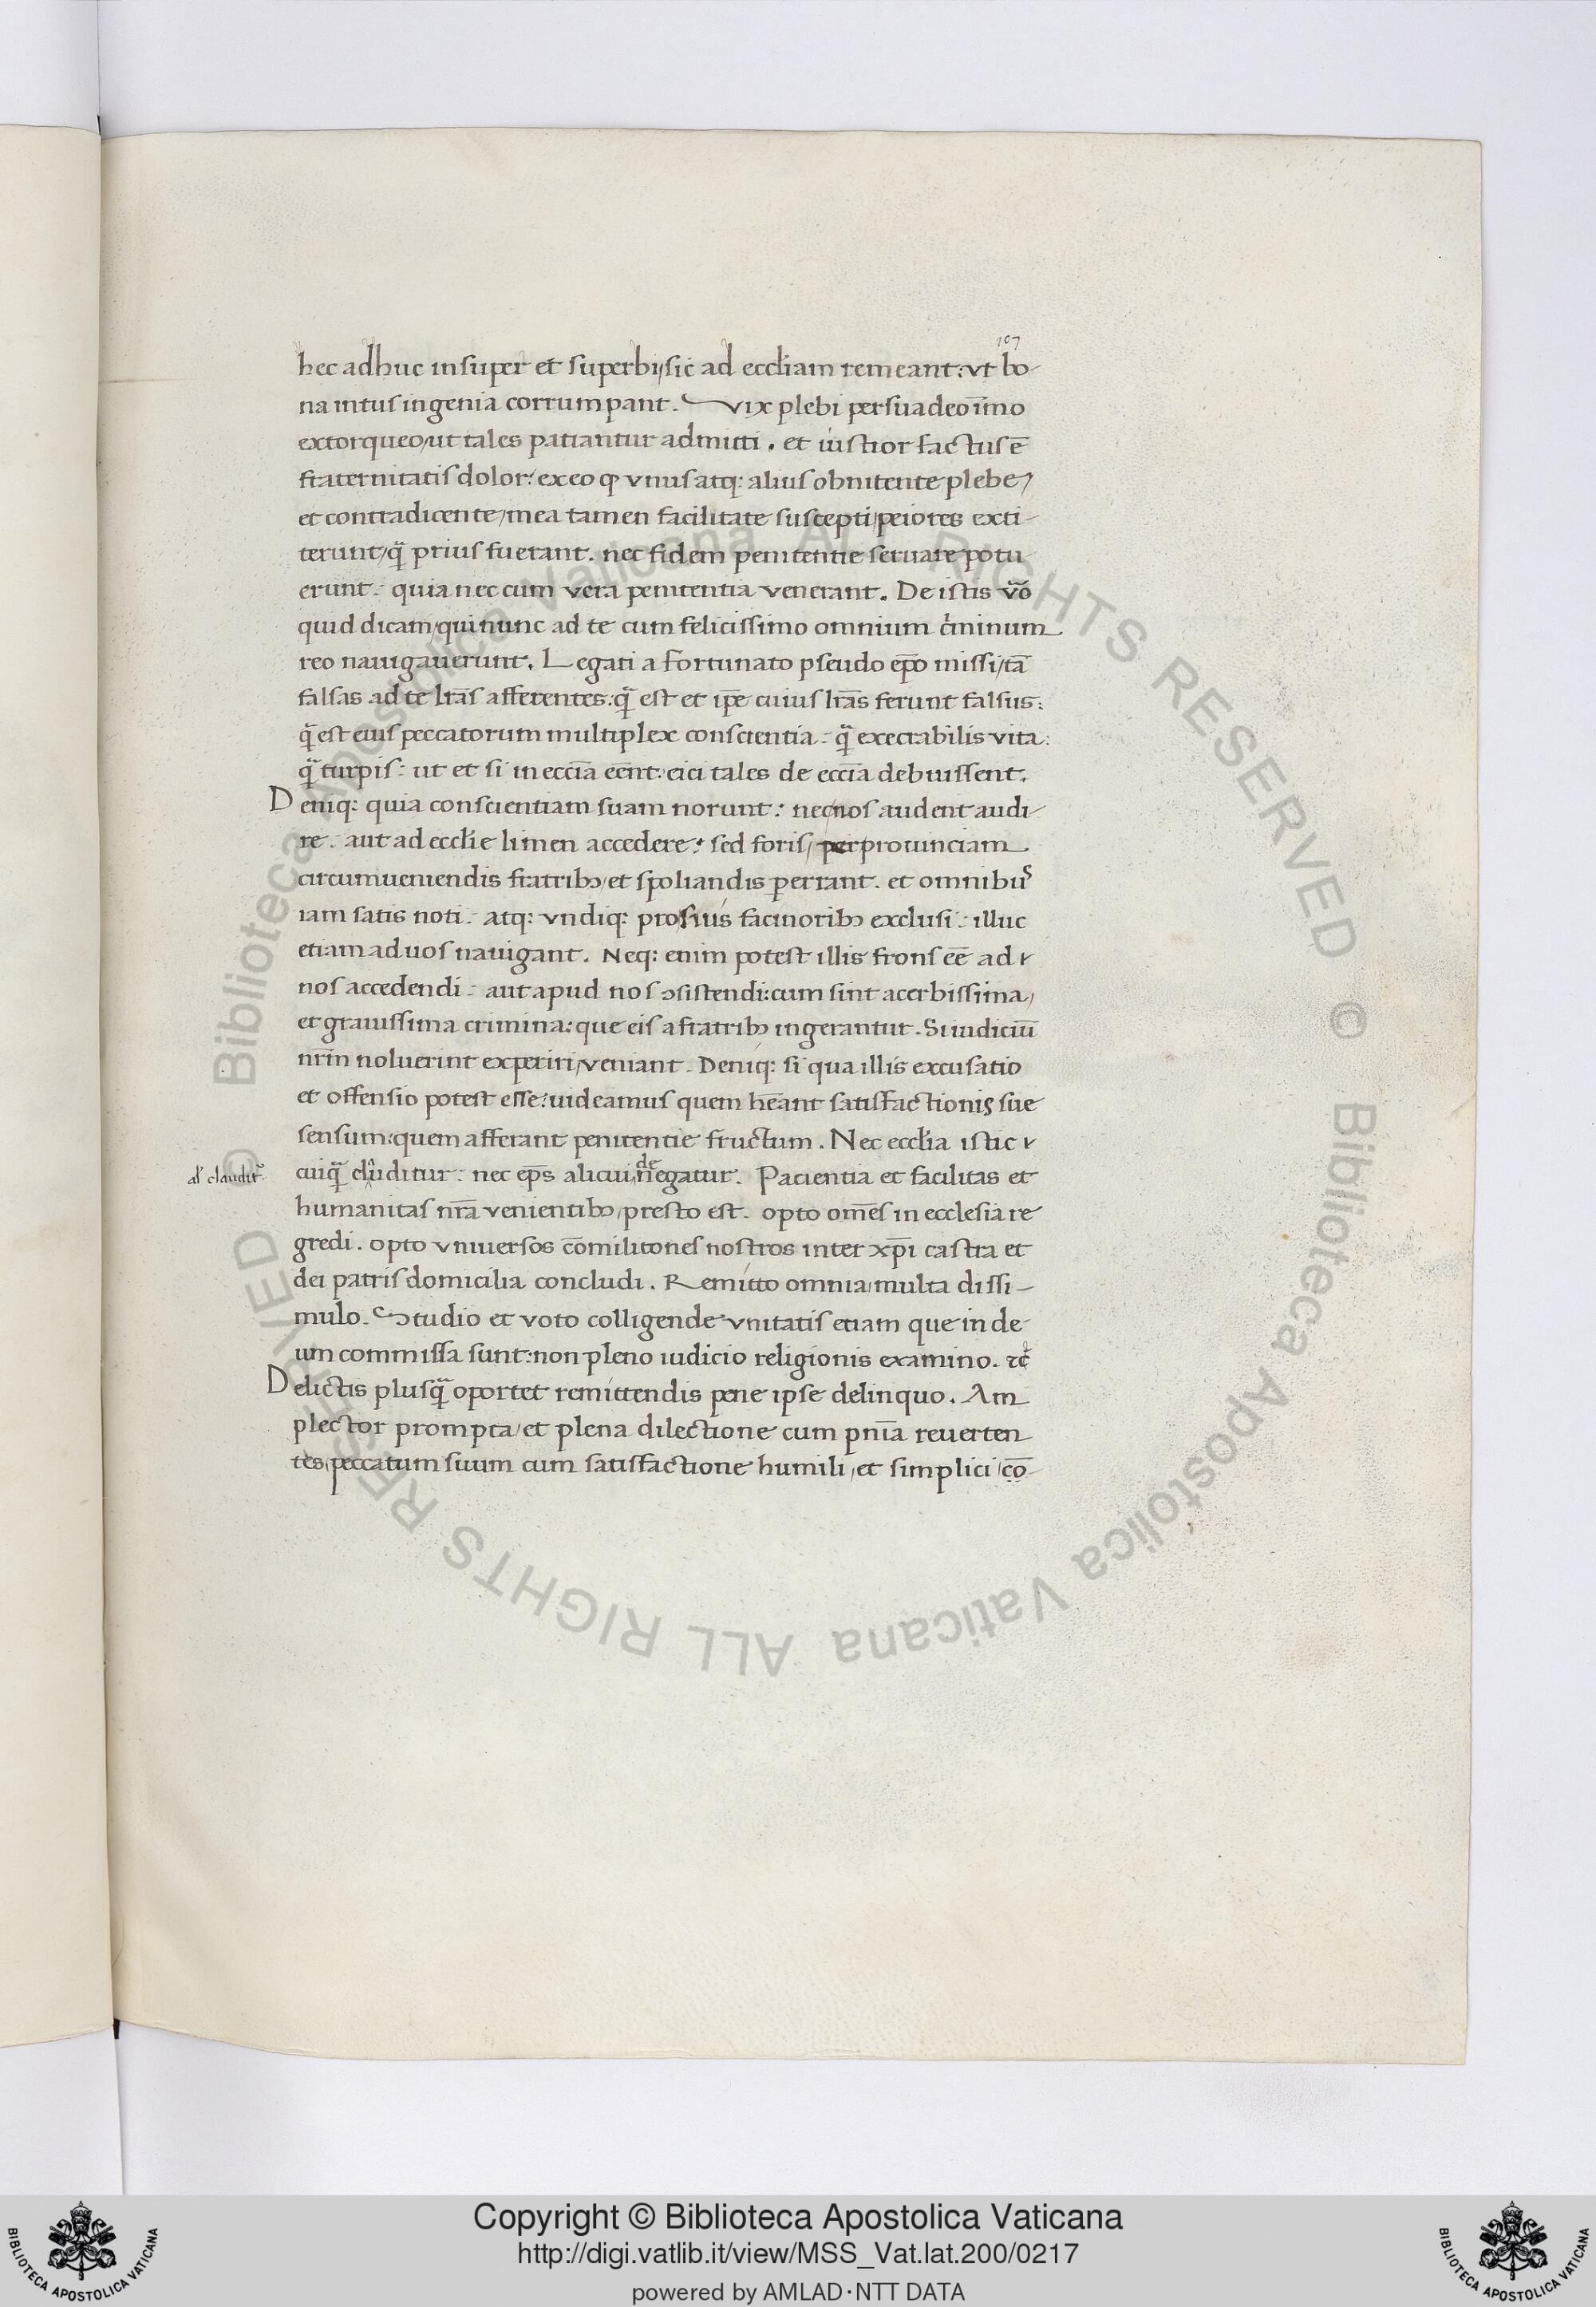 107
hec adhuc insuper et superbi/sic ad eccłiam remeant: vt bo-
na intus ingenia corrumpant. Vix plebi persuadeo īmo
extorqueo/ut tales patiantur admitti. et iustior factus ē
fraternitatis dolor: ex eo ꝙ vnus atq: alius obnitente plebe/
et contradicente/mea tamen facilitate suscepti/peiores exti-
terunt/q̃ prius fuerant. nec fidem penitentie seruare potu
erunt: quia nec cum vera penitentia venerant. De istis v̄o
quid dicam/qui nunc ad te cum felicissimo omnium cͥminum
reo nauigauerunt. Legati a fortunato pseudo ep̄o missi/tā
falsas ad te lr̄as afferentes: q̃ est et ip̄e cuius lr̄as ferunt falsus:
q̃ est eius peccatorum multiplex conscientia: q̃ execrabilis vita:
q̃ turpis: ut et si in ecc̄ia eēnt: eici tales de ecc̄ia debuissent.
Deniq: quia conscientiam suam norunt: nec nos audent audi-
re: aut ad eccłie limen accedere: sed foris/per prouinciam
circumueniendis fratribꝫ/et spoliandis ꝑerrant. et omnibus
iam satis noti: atq: vndiq: pro suis facinoribꝫ exclusi: illuc
etiam ad uos nauigant. Neq: enim potest illis frons eē ad
nos accedendi: aut apud nos ꝯsistendi: cum sint acerbissima/
et grauissima crimina: que eis a fratribꝫ ingerantur. Si iudiciū
nr̄m noluerint experiri/veniant. Deniq: si qua illis excusatio
et offensio potest esse: uideamus quem hēant satisfactionis sue
sensum: quem afferant penitentie fructum. Nec eccłia istic
al' claudit᷑
cuiq̃ cluditur: nec ep̄s alicui denegatur. Pacientia et facilitas et
humanitas nr̄a venientibꝫ/presto est. opto om̄es in ecclesia re
gredi. opto vniuersos cōmilitones nostros inter xp̄i castra et
dei patris domicilia concludi. Remitto omnia/multa dissi-
mulo. Studio et voto colligende vnitatis etiam que in de-
um commissa sunt: non pleno iudicio religionis examino.
Delictis plusq̃ oportet remittendis pene ipse delinquo. Am
plector prompta/et plena dilectione cum pn̄ia reuerten
tes/peccatum suum cum satisfactione humili/et simplici/cō-
Copyright © Biblioteca Apostolica Vaticana
http://digi.vatlib.it/view/MSS_Vat.lat.200/0217
powered by AMLAD·NTT DATA
BIBLIOTECA APOSTOLICA VATICANA
BIBLIOTECA APOSTOLICA VATICANA
© Biblioteca Apostolica Vaticana ALL RIGHTS RESERVED
© Biblioteca Apostolica Vaticana ALL RIGHTS RESERVED